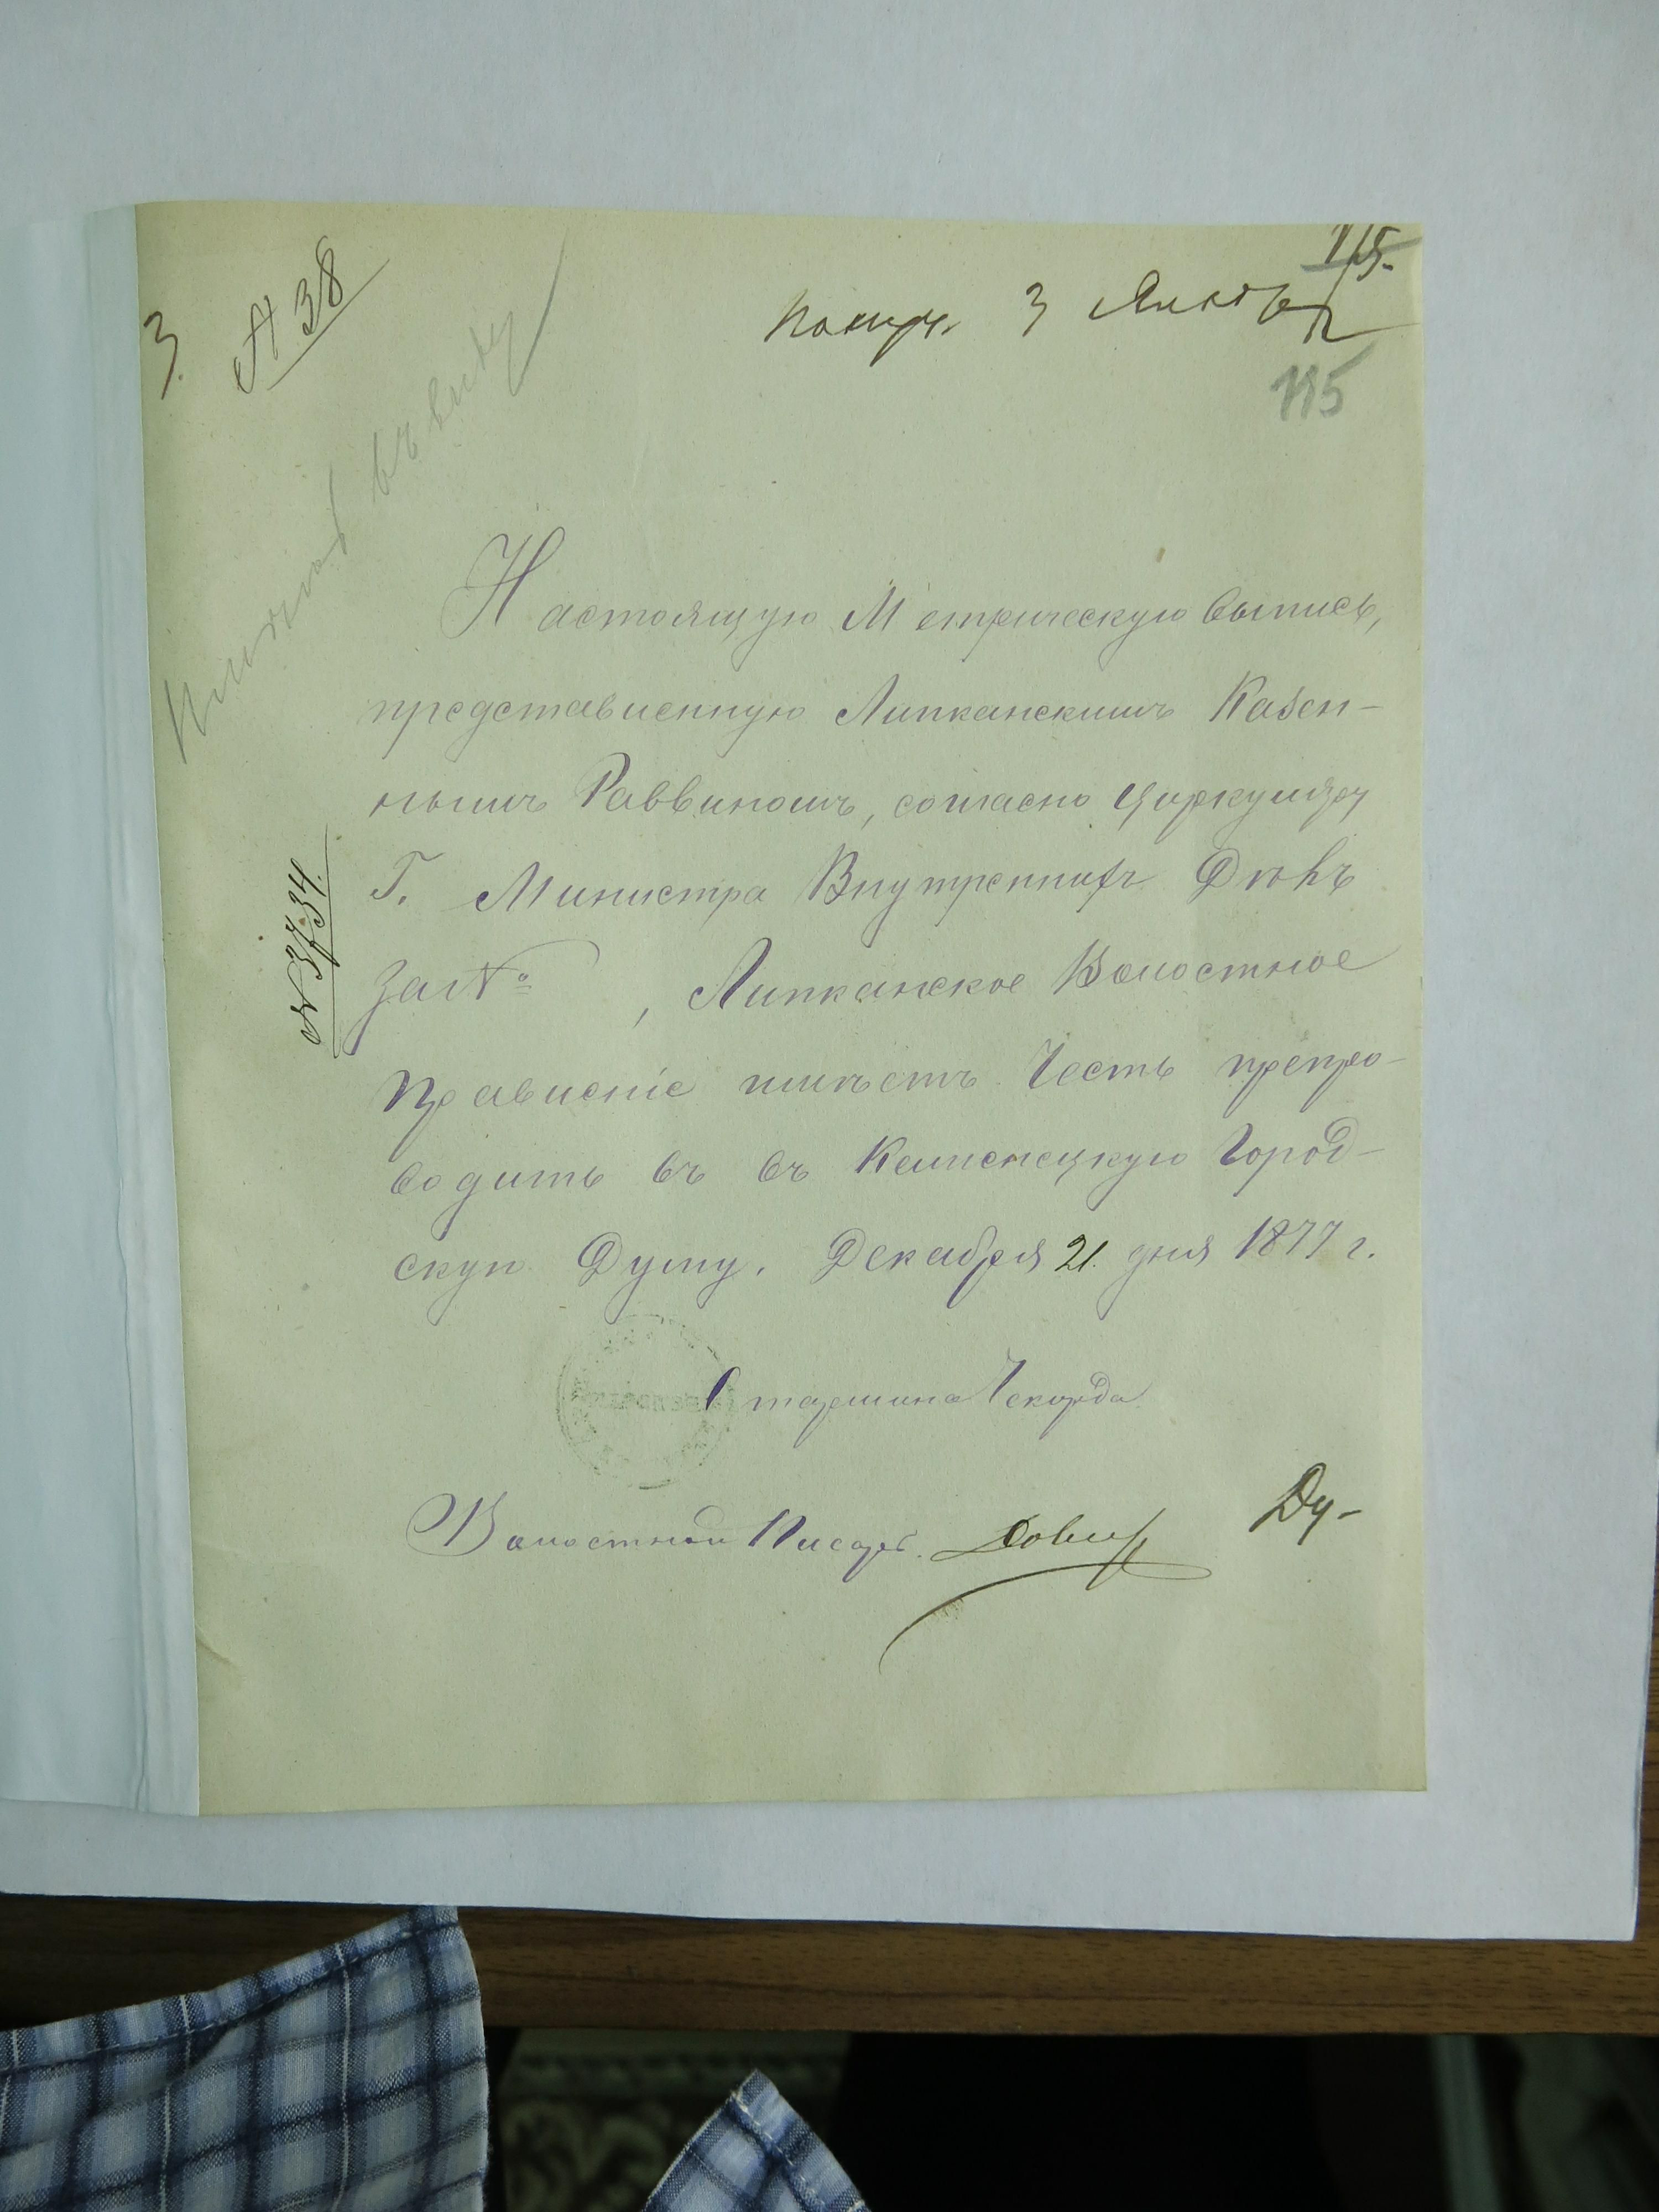 115.
3. № 38
Получ. 3 Января
115
Имѣть въ виду
Настоящую Метрическую выпись,
представленную Липканскимъ Казен-
нымъ Раввиномъ, согласно циркуляру
Г. Министра Внутреннихъ Дѣлъ
за №, Липканское Волостное
№ 3734.
Правленіе имѣетъ Честь препро-
водить въ въ Каменецкую Город-
скую Думу. Декабря 21 дня 1877 г.
Старшина Чекорда
Волостной Писарь
Ду-